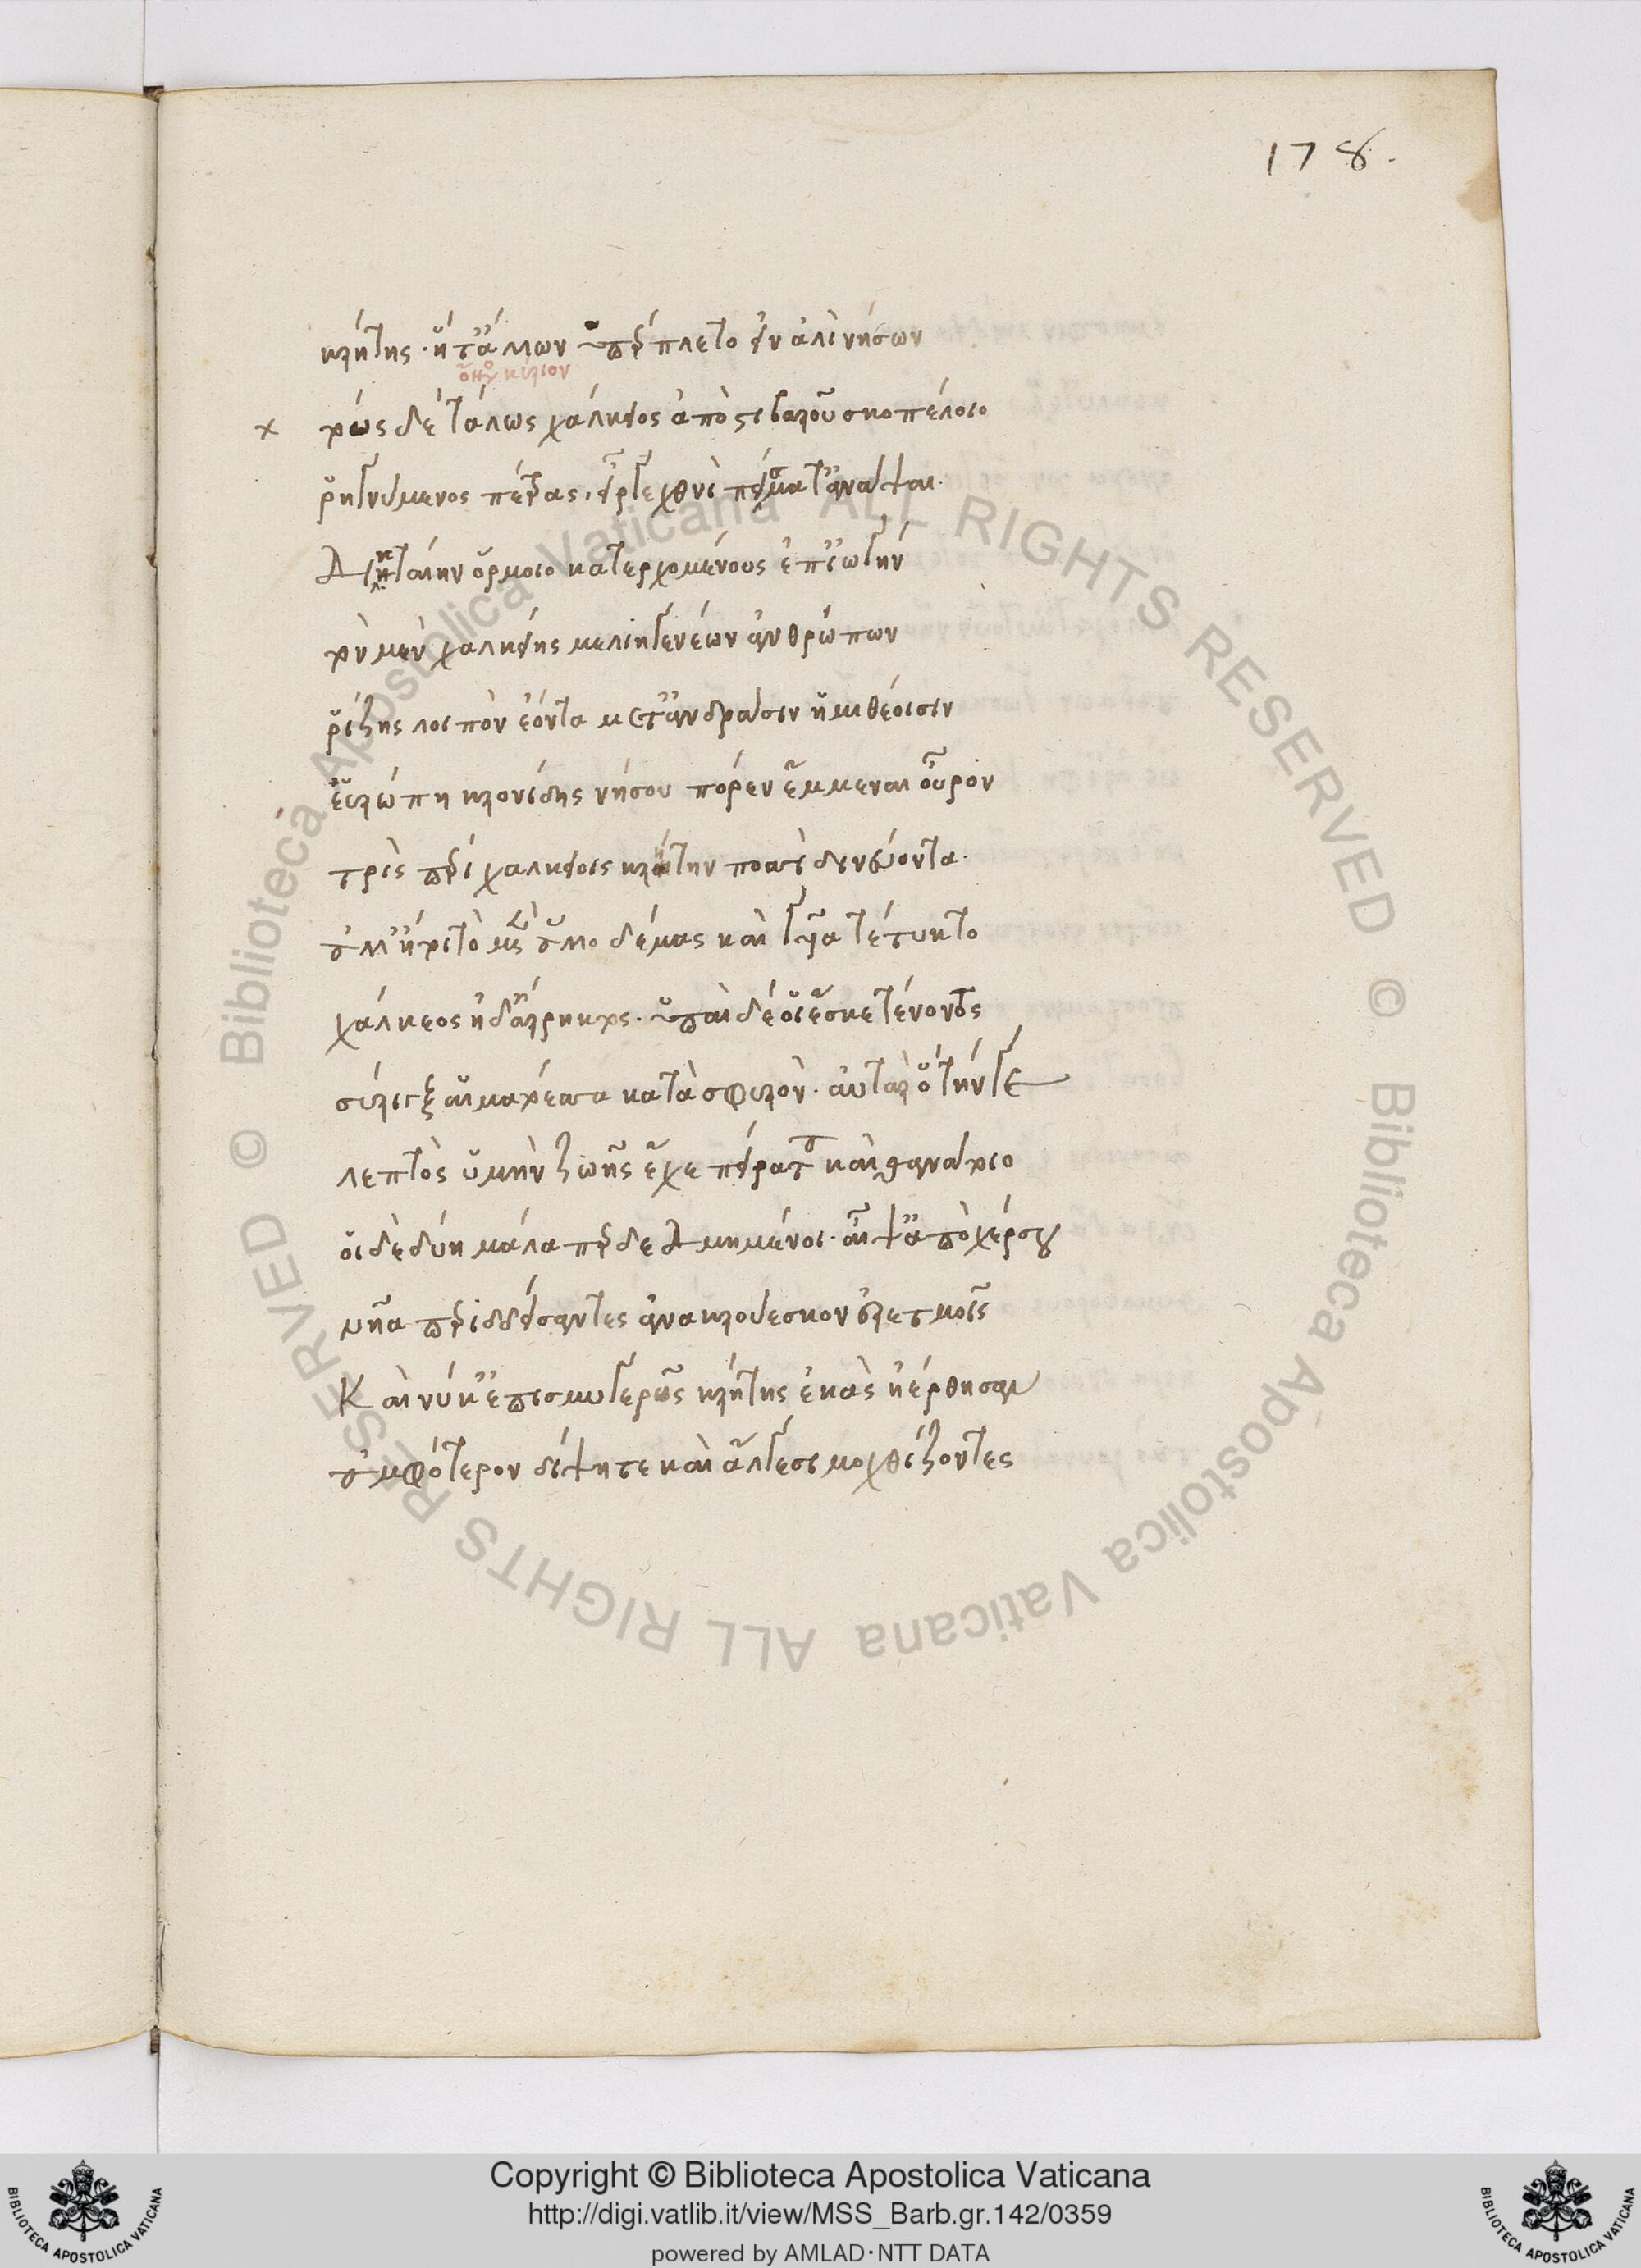 178.
κρήτης· ἥ τ᾽ ἄλλων ὑπερέπλετο εἰν ἁλὶ νήσων
τοὺς δὲ τάλως χάλκειος ἀπὸ στιβαροῦ σκοπέλοιο
ῥηγνύμενος πέτρας, εἶργε χθονὶ πείσματ᾽ ἀνάψαι.
Δικταίην ὅρμοιο κατερχομένους ἐπιωγήν
τὸν μὲν χαλκείης μελιηγενέων ἀνθρώπων
ῥίζης λοιπὸν ἐόντα μετ᾽ ἀνδράσιν ἡμιθέοισιν
εὐρώπῃ κρονίδης νήσου πόρεν ἔμμεναι οὖρον
τρὶς περὶ χαλκείοις κρήτην ποσὶ δινεύοντα.
ἀλλ᾽ ἤτοι τὸ μὲν ἄλλο δέμας καὶ γυῖα τέτυκτο
χάλκεος ἠδ᾽ ἄρρηκτος· ὑπαὶ δέ οἱ ἔσκε τένοντος
σύριγξ αἱματόεσσα κατὰ σφυρὸν· αὐτὰρ ὁ τήν γε
λεπτὸς ὑμὴν ζωῆς ἔχε πείρατα καὶ θανάτοιο
οἱ δὲ δύῃ μάλα περ δεδμημένοι· αἶψ᾽ ἀπὸ χέρσου
νῆα περιδδείσαντες ἀνακρούεσκον ἐρετμοῖς
Καί νύ κ᾽ ἐπισμυγερῶς κρήτης ἑκὰς ἠέρθησαν
ἀμφότερον δίψῃ τε καὶ ἄλγεσι μοχθίζοντες
Copyright © Biblioteca Apostolica Vaticana
http://digi.vatlib.it/view/MSS_Barb.gr.142/0359
powered by AMLAD·NTT DATA